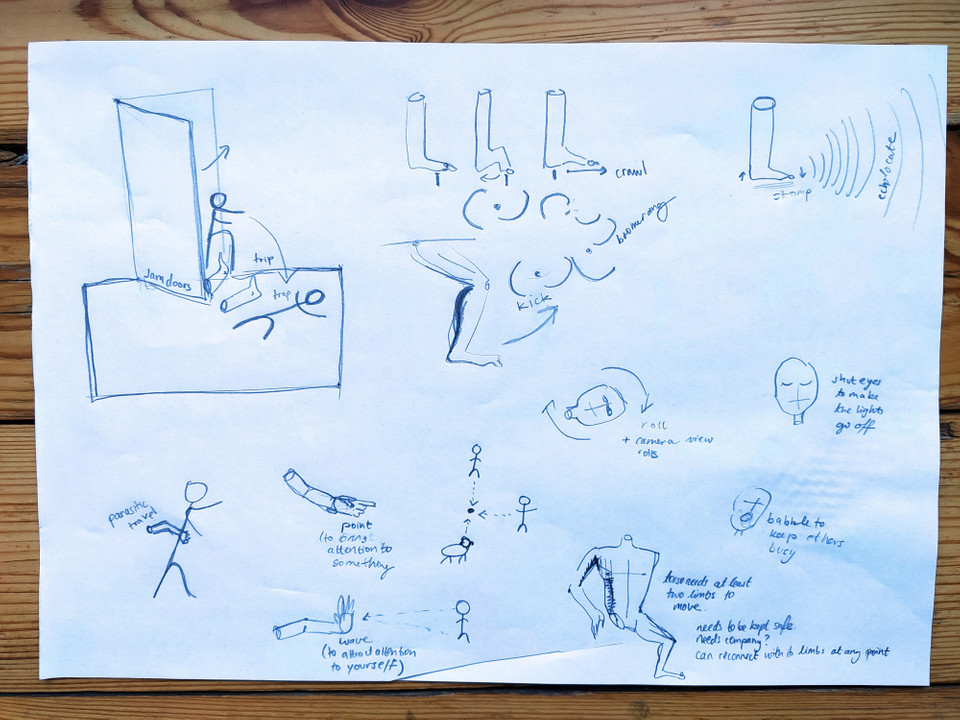 crawl
stamp
echolocate
boomerang
kick
trip
trap
Jam doors
roll
+ camera view
rolls
shut eyes
to make
the lights
go off
babble to
keep others
busy
parasitic
travel
point
(to bring
attention to
something)
wave
(to attract attention
to yourself)
torso needs at least
two limbs to
move.
needs to be kept safe.
needs company?
can reconnect with limbs at any point